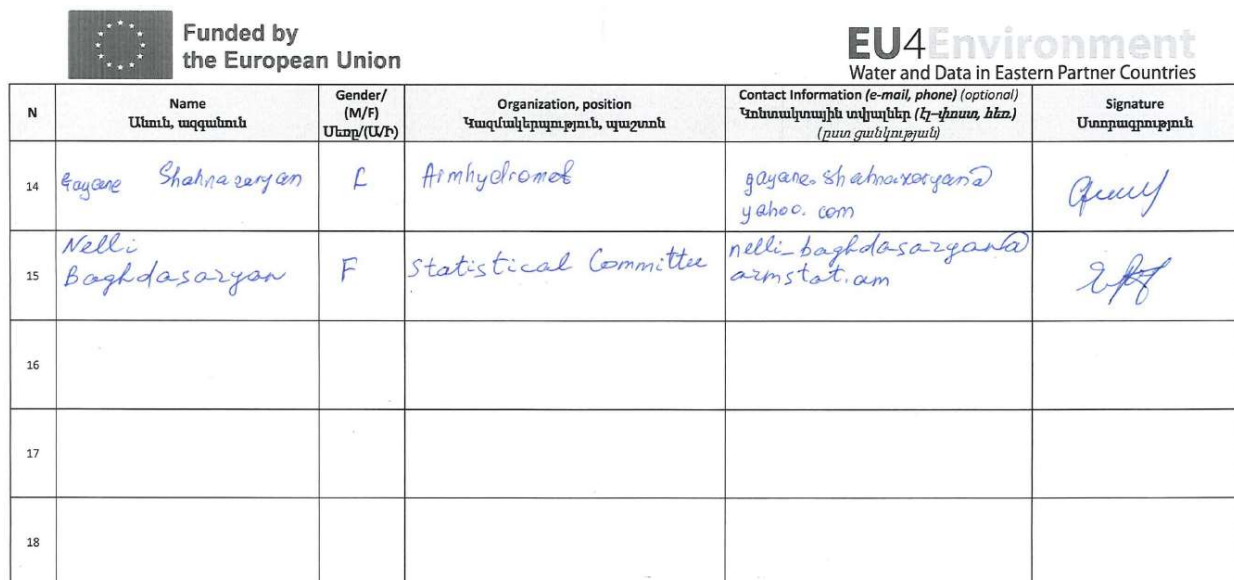 Funded by
the European Union
EU4Environment
Water and Data in Eastern Partner Countries
N
Name
Անուն, ազգանուն
Gender/
(M/F)
Սեռը/(Ա/Ի)
Organization, position
Կազմակերպություն, պաշտոն
Contact Information (e-mail, phone) (optional)
Կոնտակտային տվյալներ (էլ-փոստ, հեռ.)
(ըստ ցանկության)
Signature
Ստորագրություն
14
Gayane Shahnazaryan
F
Armhydromet
gayane.shahnazaryan@
yahoo.com
15
Nelli
Baghdasaryan
F
Statistical Committee
nelli_baghdasaryan@
armstat.am
16
17
18